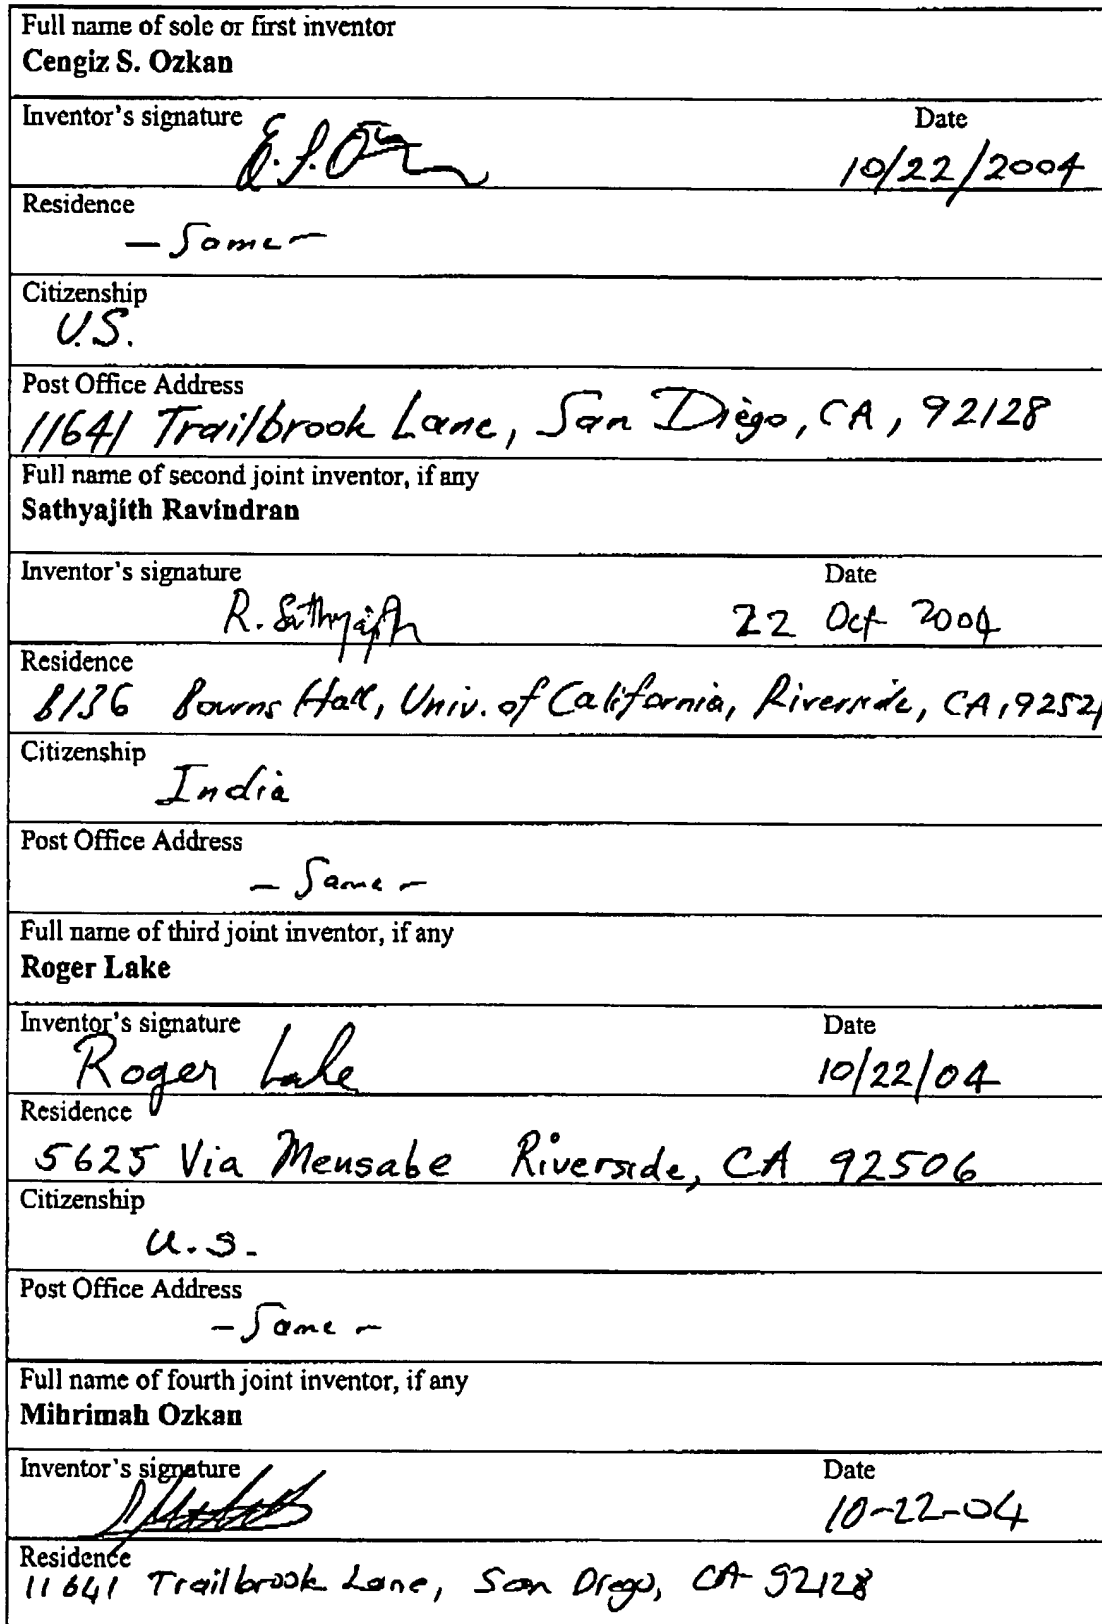 Full name of sole or first inventor
Cengiz S. Ozkan
Inventor's signature Date
10/22/2004
Residence
- Same -
Citizenship
U.S.
Post Office Address
11641 Trailbrook Lane, San Diego, CA, 92128
Full name of second joint inventor, if any
Sathyajith Ravindran
Inventor's signature Date
R. Sathyajith 22 Oct 2004
Residence
B136 Bourns Hall, Univ. of California, Riverside, CA, 92521
Citizenship
India
Post Office Address
- Same -
Full name of third joint inventor, if any
Roger Lake
Inventor's signature Date
Roger Lake 10/22/04
Residence
5625 Via Mensabe Riverside, CA 92506
Citizenship
U.S.
Post Office Address
- Same -
Full name of fourth joint inventor, if any
Mihrimah Ozkan
Inventor's signature Date
10-22-04
Residence
11641 Trailbrook Lane, San Diego, CA 92128